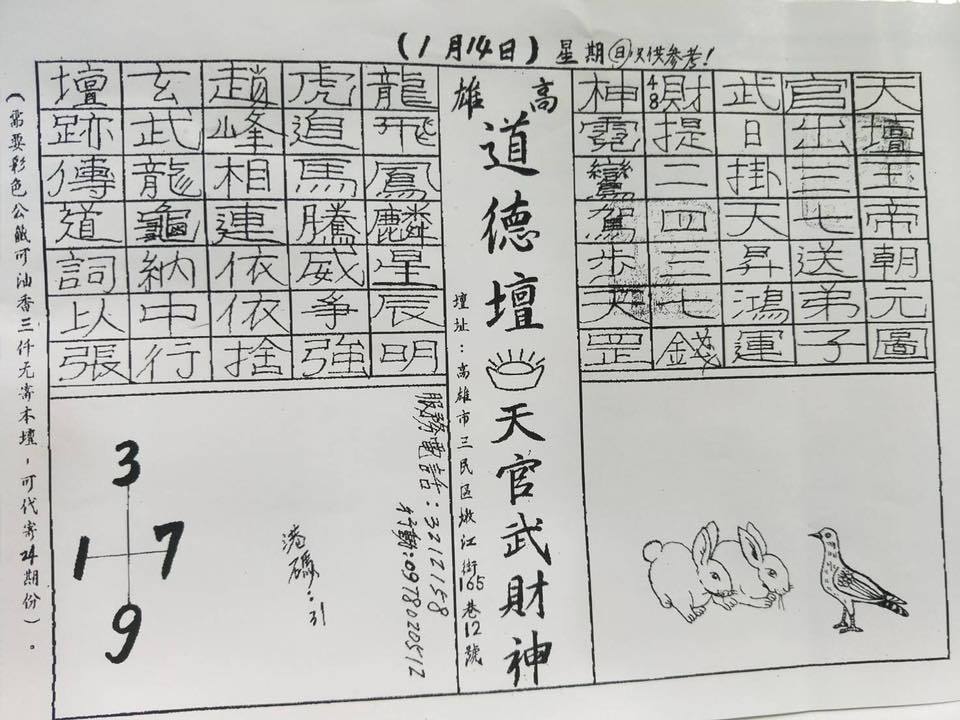 (1月14日)星期㊐仅供參考!
天壇玉帝朝元圖
官出三七送弟子
武日掛天昇鴻運
財48提二四三七錢
神霓鸞駕步天罡
高雄
道德壇天官武財神
壇址:高雄市三民區嫩江街165巷12號
龍飛鳳麟星辰明
虎追馬騰威爭強
趙峰相連依依捨
玄武龍龜納中行
壇跡傳道詞以張
服務電話:3212158
行動:0978020512
港碼:31
3
1 7
9
(需要彩色公籤可油香三仟元寄本壇,可代寄24期份)。